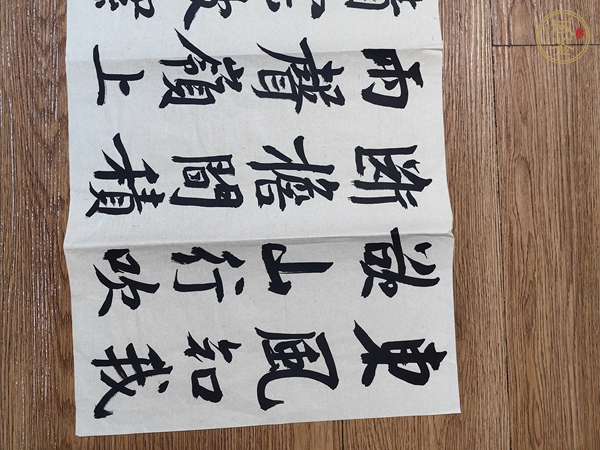 東風知我
欲山行吹
断檐間積
雨聲嶺上